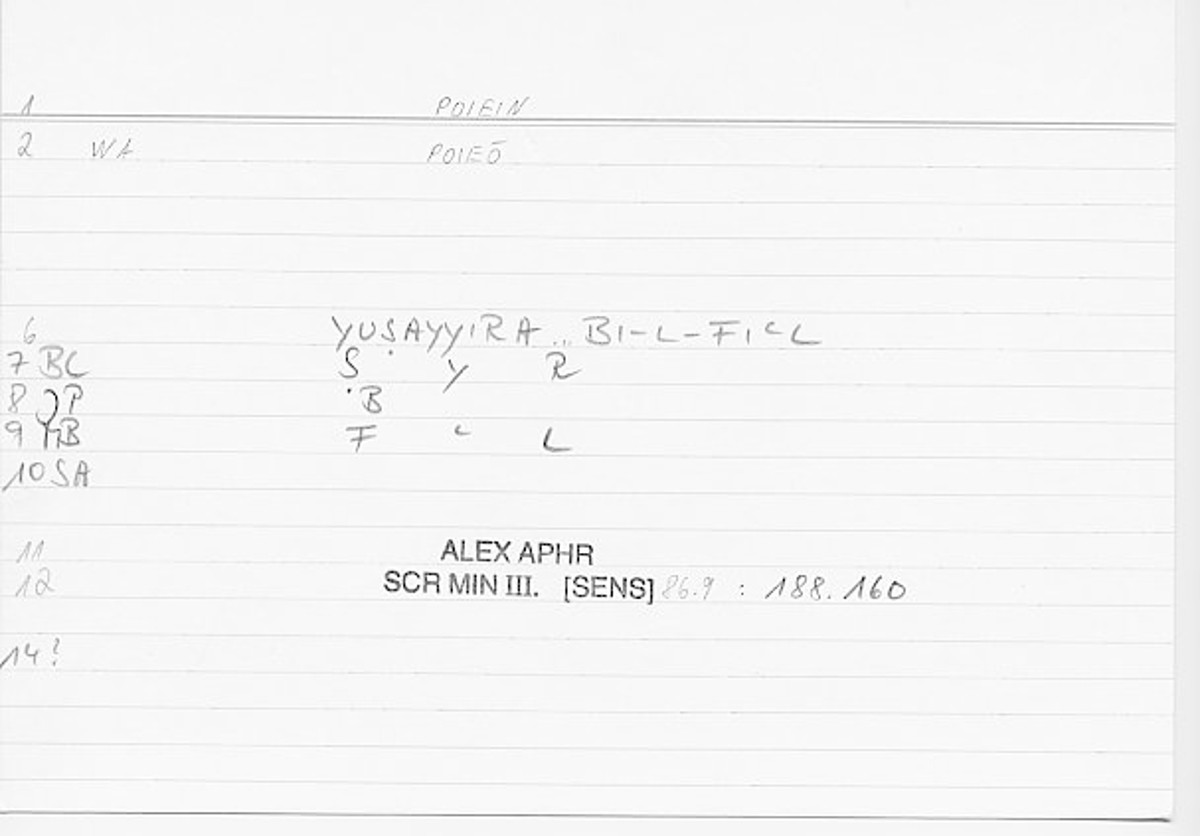 1 POIEIN
2 WA POIEŌ
6 YUṢAYYIRA ... BI-L-FIʿL
7 BC Ṣ Y R
8 P B
9 B F ʿ L
10 SA
11 ALEX APHR
12 SCR MIN III. [SENS] 86.9 : 188.160
14?